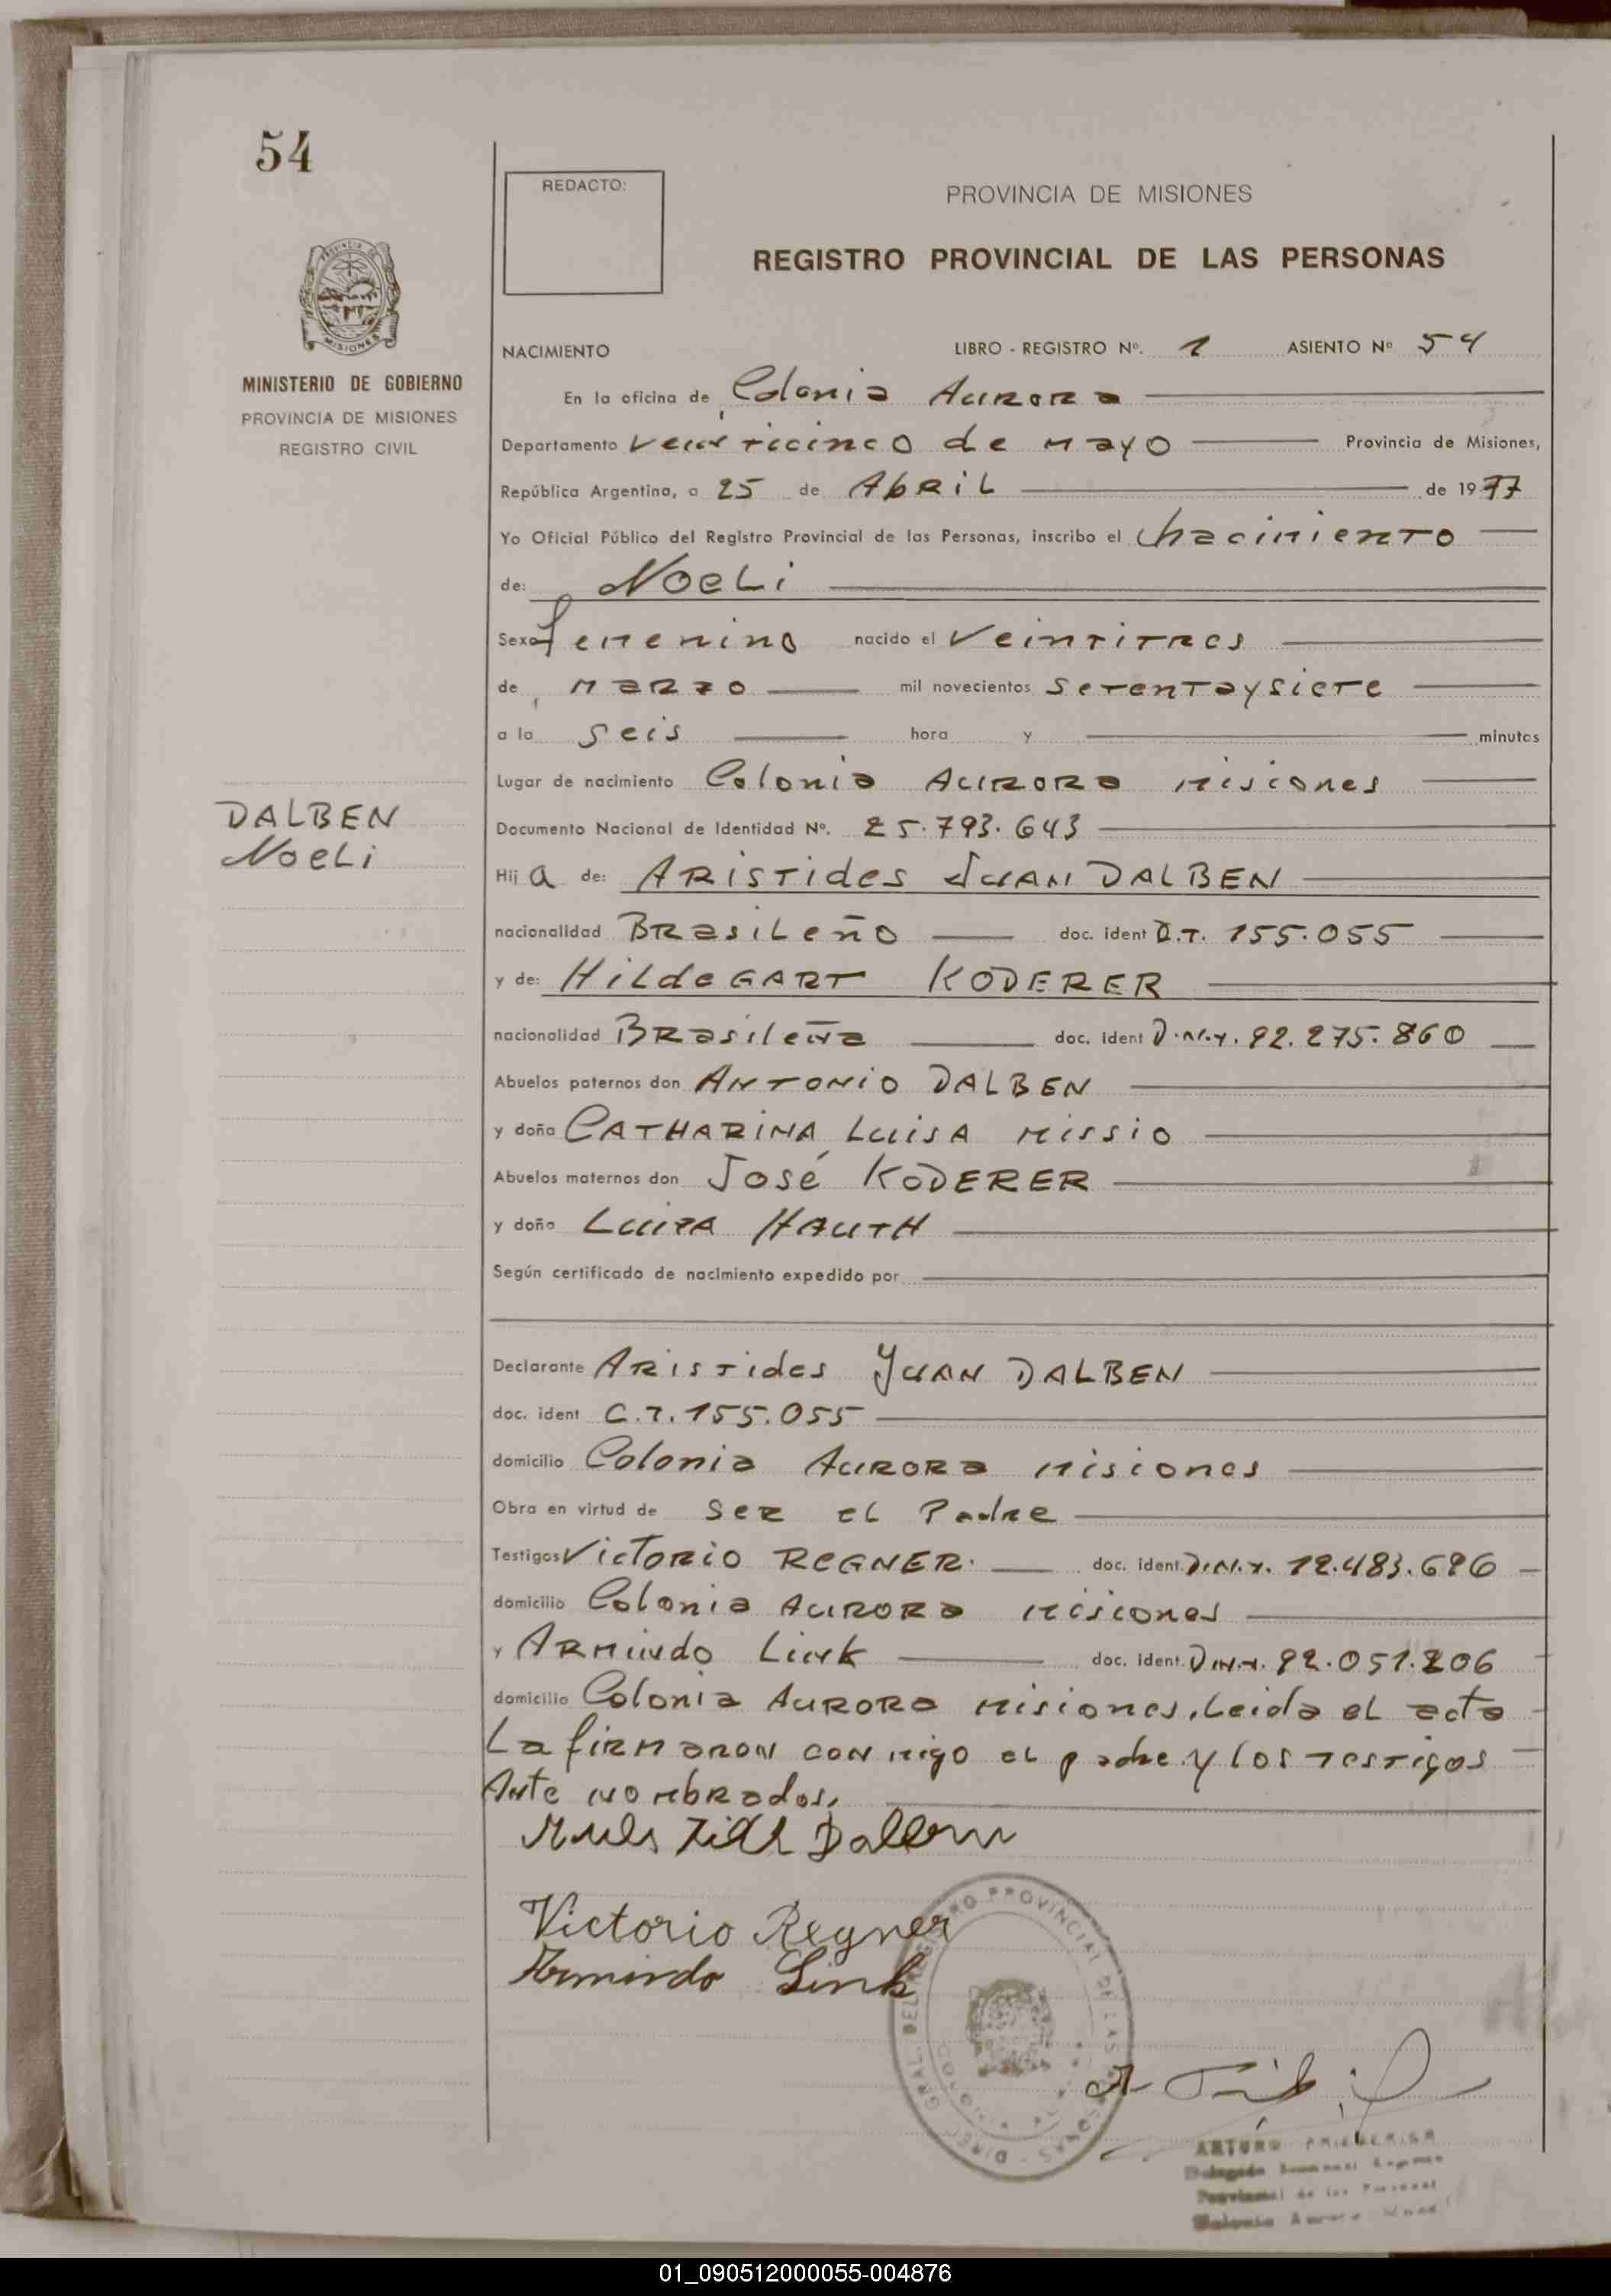 54
REDACTO:
PROVINCIA DE MISIONES
REGISTRO PROVINCIAL DE LAS PERSONAS
MISIONES
MINISTERIO DE GOBIERNO
PROVINCIA DE MISIONES
REGISTRO CIVIL
NACIMIENTO LIBRO - REGISTRO Nº. 1 ASIENTO Nº 54
En la oficina de Colonia Aurora
Departamento veinticinco de Mayo Provincia de Misiones,
República Argentina, a 25 de Abril de 1977
Yo Oficial Público del Registro Provincial de las Personas, inscribo el nacimiento
de: Noeli
Sexo femenino nacido el Veintitres
de Marzo mil novecientos setentaysiete
a la seis hora y minutos
Lugar de nacimiento Colonia Aurora Misiones
DALBEN
Noeli
Documento Nacional de Identidad Nº. 25.793.643
Hij a de: Aristides Juan DALBEN
nacionalidad Brasileño doc. ident 155.055
y de: Hildegart KODERER
nacionalidad Brasileña doc. ident D.N.I. 92.275.860
Abuelos paternos don Antonio DALBEN
y doña Catharina Luisa Missio
Abuelos maternos don José KODERER
y doña Luiza Hauth
Según certificado de nacimiento expedido por
Declarante Aristides Juan DALBEN
doc. ident C.I. 155.055
domicilio Colonia Aurora Misiones
Obra en virtud de ser el Padre
Testigos Victorio REGNER. doc. ident. D.N.I. 12.483.696
domicilio Colonia Aurora Misiones
y Armindo Link doc. ident. D.N.I. 92.051.206
domicilio Colonia Aurora Misiones, Leida el acta
La firmaron conmigo el padre y los testigos
Ante nombrados.
Dalben
Victorio Regner
Armindo Link
DEL REGISTRO PROVINCIAL DE LAS PERSONAS
ARTURO
01_090512000055-004876